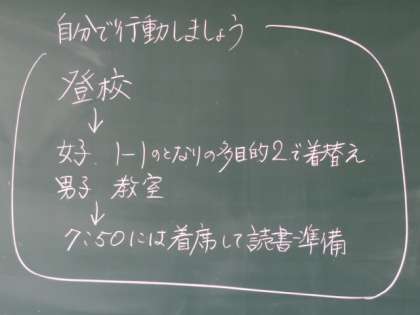 自分で行動しましょう
登校
↓
女子 1-1のとなりの多目的2で着替え
男子 教室
↓
7:50には着席して読書準備